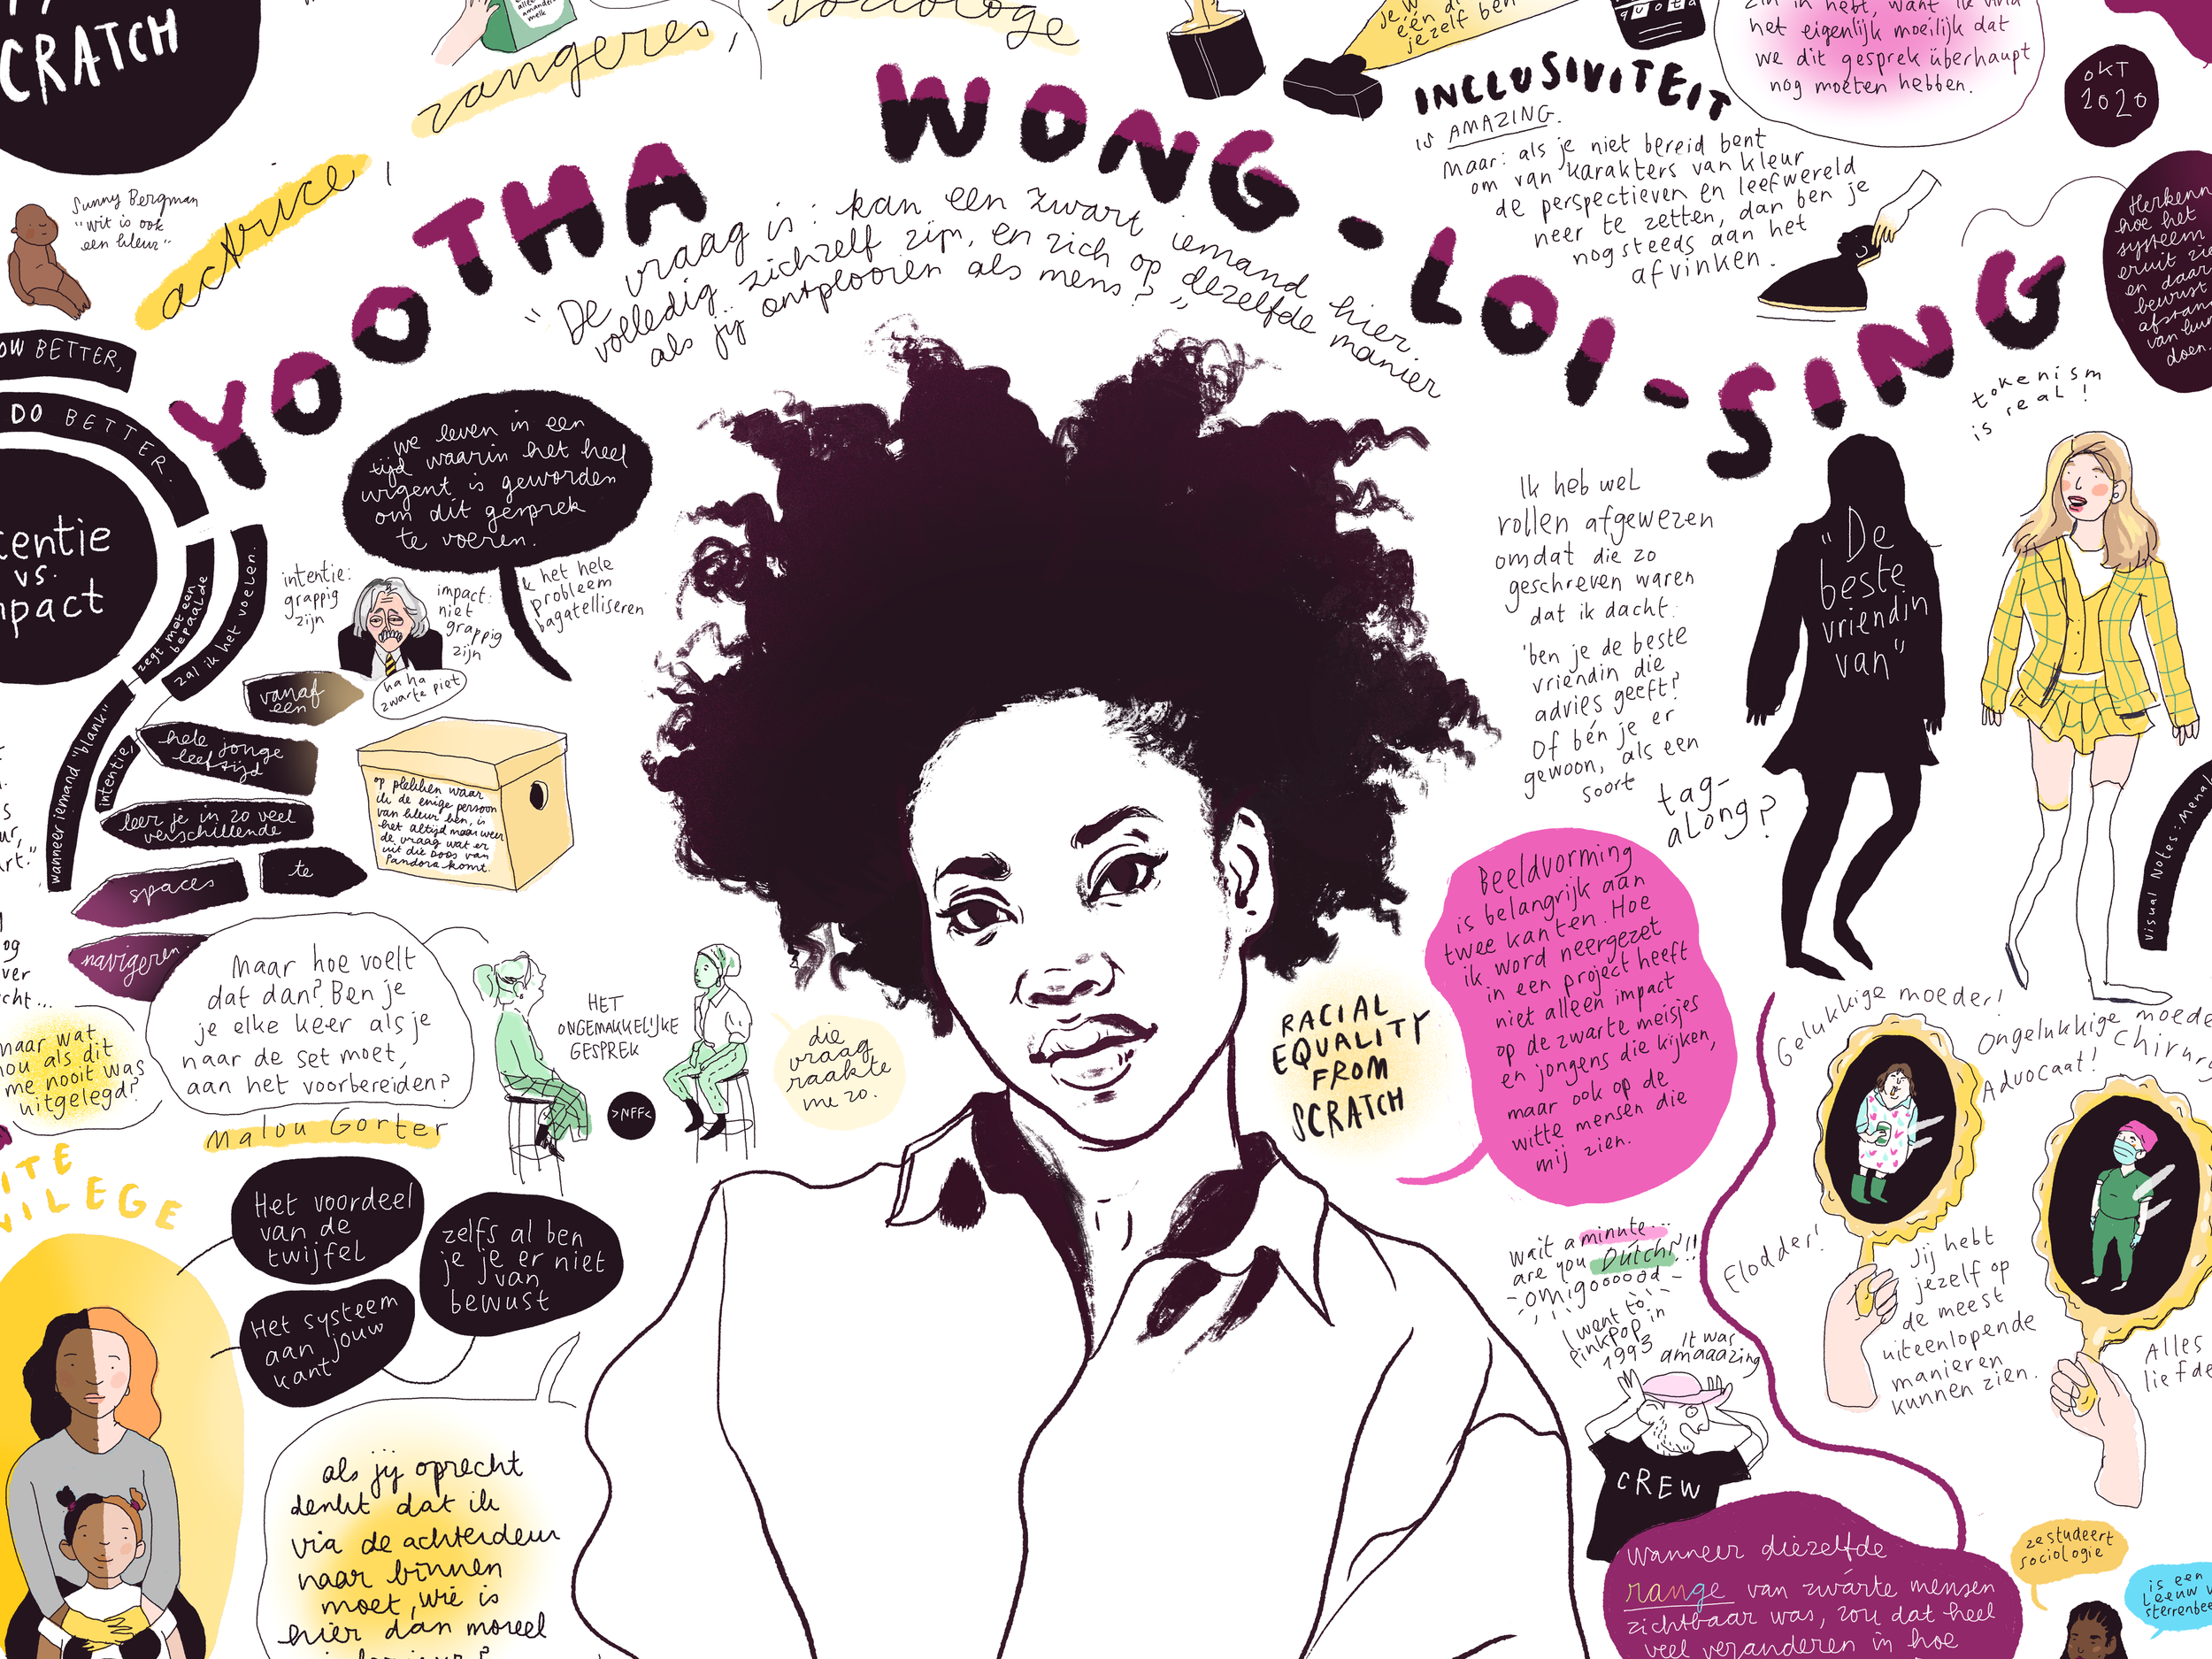 CRATCH
amandel
melk
zangeres,
sociologe
actrice,
YOOTHA WONG-LOI-SING
"De vraag is: kan een zwart iemand hier
volledig zichzelf zijn, en zich op dezelfde manier
als jij ontplooien als mens?"
één di
jezelf ben
quota
INCLUSIVITEIT
is AMAZING.
Maar: als je niet bereid bent
om van karakters van kleur
de perspectieven en leefwereld
neer te zetten, dan ben je
nog steeds aan het
afvinken.
zin in hebt, want ik vind
het eigenlijk moeilijk dat
we dit gesprek überhaupt
nog moeten hebben.
OKT
2020
Herkenn
hoe het
systeem
eruit zie
en daar
bewust
afstan
van kun
doen.
Sunny Bergman
"wit is ook
een kleur"
OW BETTER,
DO BETTER.
tentie
vs.
mpact
wanneer iemand "blank"
zegt met een
bepaalde
intentie,
zal ik het voelen.
we leven in een
tijd waarin het heel
urgent is geworden
om dit gesprek
te voeren.
intentie:
grappig
zijn
impact:
niet
grappig
zijn
& het hele
probleem
bagatelliseren
ha ha
zwarte piet
vanaf
een
hele jonge
leeftijd
leer je in zo veel
verschillende
spaces
te
navigeren
op plekken waar
ik de enige persoon
van kleur ben, is
het altijd maar weer
de vraag wat er
uit die Doos van
Pandora komt.
tokenism
is real!
Ik heb wel
rollen afgewezen
omdat die zo
geschreven waren
dat ik dacht:
'ben je de beste
vriendin die
advies geeft?
Of bén je er
gewoon, als een
soort
tag-
along?
"De
beste
vriendin
van"
Visual Notes: Menah
Maar hoe voelt
dat dan? Ben je
je elke keer als je
naar de set moet,
aan het voorbereiden?
Malou Gorter
HET
ONGEMAKKELIJKE
GESPREK
>NFF<
die
vraag
raakte
me zo.
maar wat
nou als dit
me nooit was
uitgelegd?
RACIAL
EQUALITY
FROM
SCRATCH
Beeldvorming
is belangrijk aan
twee kanten. Hoe
ik word neergezet
in een project heeft
niet alleen impact
op de zwarte meisjes
en jongens die kijken,
maar ook op de
witte mensen die
mij zien.
Gelukkige moeder!
Ongelukkige moede
Chirurg
Advocaat!
Flodder!
Jij hebt
jezelf op
de meest
uiteenlopende
manieren
kunnen zien.
Alles
liefde
ITE
VILEGE
Het voordeel
van de
twijfel
zelfs al ben
je je er niet
van
bewust
Het systeem
aan jouw
kant
als jij oprecht
denkt dat ik
via de achterdeur
naar binnen
moet, wie is
hier dan moreel
wait a minute...
are you Dutch?!!
omigooood
I went to
Pinkpop in
1993
It was
amaaazing
CREW
Wanneer diezelfde
range van zwarte mensen
zichtbaar was, zou dat heel
veel veranderen in hoe
ze studeert
sociologie
is een
Leeuw v
sterrenbee